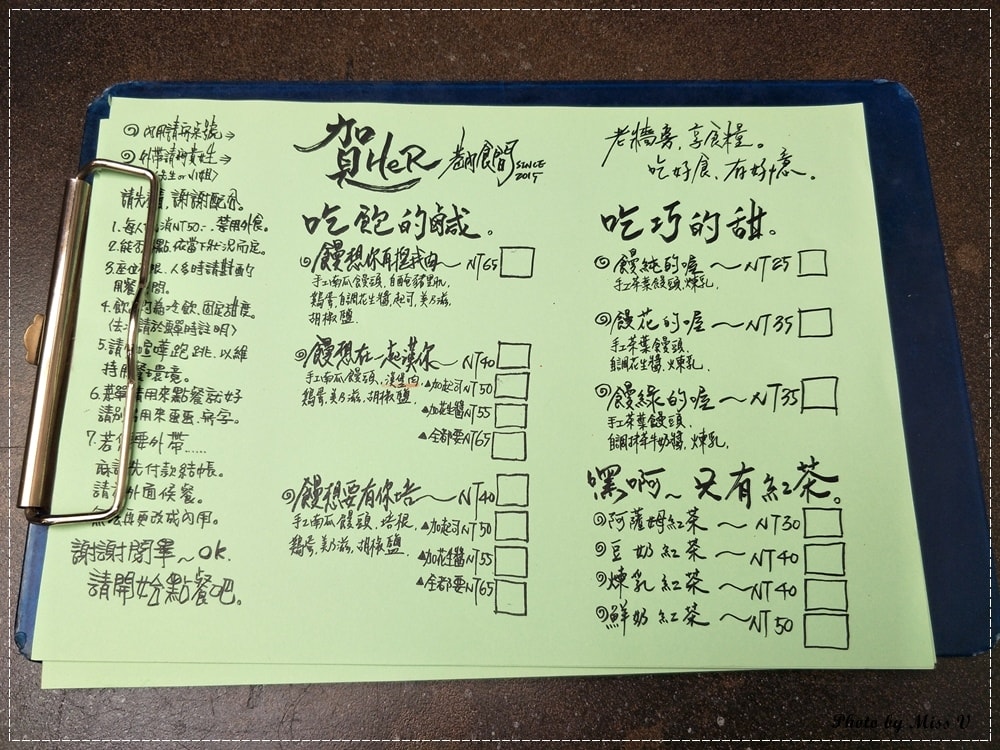 內用請寫桌號→
外帶請問貴姓→
先生or小姐>
請先 , 謝謝配合。
1. 每人 消NT50.-. 禁用外食。
2. 能否 點, 依當下狀況而定。
3. 座位 , 人多時請對面的
用餐 間。
4. 飲 為冷飲. 固定甜度。
(去 請於菜單時註明)
5. 請勿喧嘩跑跳. 以維
持用餐環境。
6. 菜單請用來點餐就好
請別 用來畫畫、寫字。
7. 若你要外帶......
麻請先付款結帳。
請於外面侯餐。
無法再更改成內用。
謝謝閱畢~ok.
請開始點餐吧。
賀HeR 巷內食間 SINCE 2015
吃飽的鹹。
饅想你再控我肉~ NT65
手工南瓜饅頭. 自 豬里肌.
鷄蛋. 自調花生醬. 起司. 美乃滋.
胡椒鹽.
饅想在一起漢你~ NT40
手工南瓜饅頭. 漢堡肉. ▲加起司NT50
鷄蛋. 美乃滋. 胡椒鹽. ▲加花生醬NT55
▲全都要NT65
饅想要有你培~ NT40
手工南瓜饅頭. 培根. ▲加起司NT50
鷄蛋. 美乃滋. 胡椒鹽. ▲加花生醬NT55
▲全都要NT65
老牆旁, 享食糧。
吃好食. 有好意。
吃巧的甜。
饅純的喔 ~NT25
手工茶葉饅頭. 煉乳.
饅花的喔 ~NT35
手工茶葉饅頭.
自調花生醬. 煉乳.
饅綠的喔 ~NT35
手工茶葉饅頭.
自調抹茶牛奶醬. 煉乳.
嘿啊~只有紅茶。
阿薩姆紅茶 ~ NT30
豆奶紅茶 ~ NT40
煉乳紅茶 ~ NT40
鮮奶紅茶 ~ NT50
Photo by Miss V